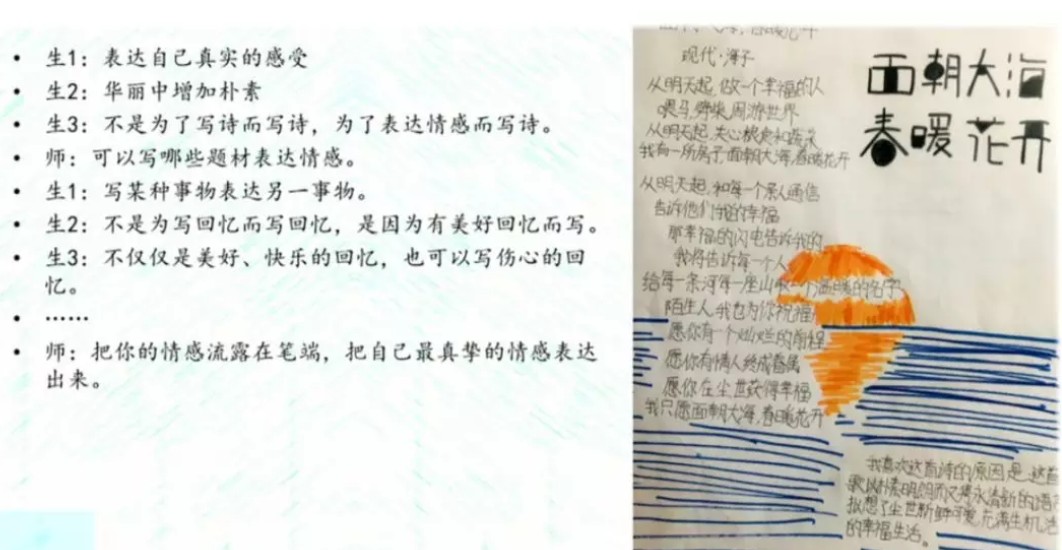 • 生1：表达自己真实的感受
• 生2：华丽中增加朴素
• 生3：不是为了写诗而写诗，为了表达情感而写诗。
• 师：可以写哪些题材表达情感。
• 生1：写某种事物表达另一事物。
• 生2：不是为写回忆而写回忆，是因为有美好回忆而写。
• 生3：不仅仅是美好、快乐的回忆，也可以写伤心的回
忆。
• ……
• 师：把你的情感流露在笔端，把自己最真挚的情感表达
出来。
面朝大海
春暖花开
现代·海子
从明天起，做一个幸福的人
喂马，劈柴，周游世界
从明天起，关心粮食和蔬菜
我有一所房子，面朝大海，春暖花开
从明天起，和每一个亲人通信
告诉他们我的幸福
那幸福的闪电告诉我的
我将告诉每一个人
给每一条河每一座山取一个温暖的名字
陌生人，我也为你祝福
愿你有一个灿烂的前程
愿你有情人终成眷属
愿你在尘世获得幸福
我只愿面朝大海，春暖花开
我喜欢这首诗的原因是，这首
歌以朴素明朗而又隽永清新的语
拟想了尘世新鲜可爱，充满生机活
的幸福生活。